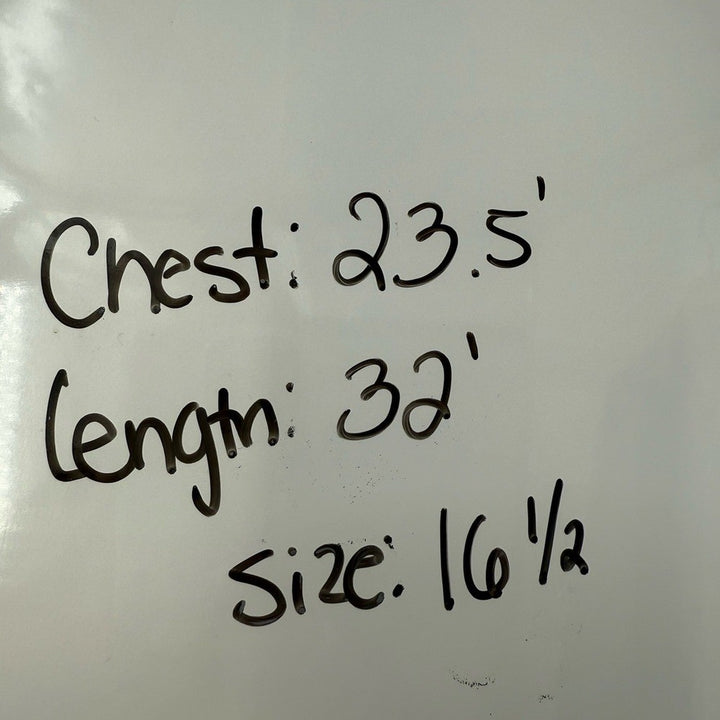 Chest: 23.5'
Length: 32'
Size: 16 1/2